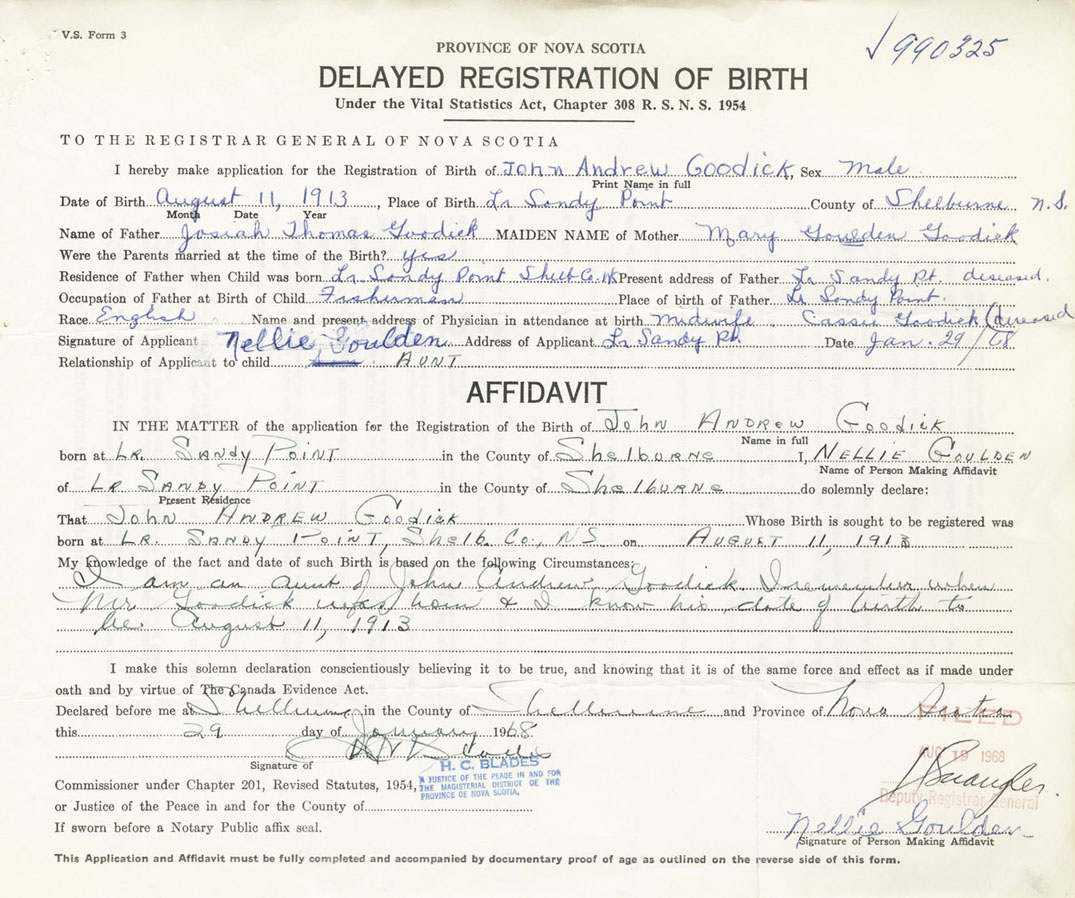 V.S. Form 3
√990325
PROVINCE OF NOVA SCOTIA
DELAYED REGISTRATION OF BIRTH
Under the Vital Statistics Act, Chapter 308 R. S. N. S. 1954
TO THE REGISTRAR GENERAL OF NOVA SCOTIA
I hereby make application for the Registration of Birth of John Andrew Goodick, Sex Male
Print Name in full
Date of Birth August 11, 1913, Place of Birth Lr Sandy Point County of Shelburne N.S.
Month Date Year
Name of Father Josiah Thomas Goodick MAIDEN NAME of Mother Mary Goulden Goodick
Were the Parents married at the time of the Birth? yes
Residence of Father when Child was born Lr. Sandy Point Shelb Co. NS Present address of Father Lr Sandy Pt. deseased.
Occupation of Father at Birth of Child Fisherman Place of birth of Father Lr Sandy Point.
Race English Name and present address of Physician in attendance at birth Midwife Cassie Goodick (deseased
Signature of Applicant Nellie Goulden Address of Applicant Lr Sandy Pt. Date Jan. 29/68
Relationship of Applicant to child AUNT
AFFIDAVIT
IN THE MATTER of the application for the Registration of the Birth of John Andrew Goodick
Name in full
born at LR. Sandy Point in the County of Shelburne I, Nellie Goulden
Name of Person Making Affidavit
of LR Sandy Point in the County of Shelburne do solemnly declare:
Present Residence
That John Andrew Goodick Whose Birth is sought to be registered was
born at LR. Sandy Point, Shelb. Co., NS on August 11, 1913
My knowledge of the fact and date of such Birth is based on the following Circumstances:
I am an aunt of John Andrew Goodick. I remember when
Mr. Goodick was born & I know his date of birth to
be August 11, 1913
I make this solemn declaration conscientiously believing it to be true, and knowing that it is of the same force and effect as if made under
oath and by virtue of The Canada Evidence Act.
Declared before me at Shelburne in the County of Shelburne and Province of Nova Scotia
this 29 day of January 1968.
FILED
AUG 19 1968
Deputy Registrar General
Signature of
H. C. BLADES
A JUSTICE OF THE PEACE IN AND FOR
THE MAGISTERIAL DISTRICT OF THE
PROVINCE OF NOVA SCOTIA.
Commissioner under Chapter 201, Revised Statutes, 1954,
or Justice of the Peace in and for the County of
If sworn before a Notary Public affix seal.
Nellie Goulden
Signature of Person Making Affidavit
This Application and Affidavit must be fully completed and accompanied by documentary proof of age as outlined on the reverse side of this form.